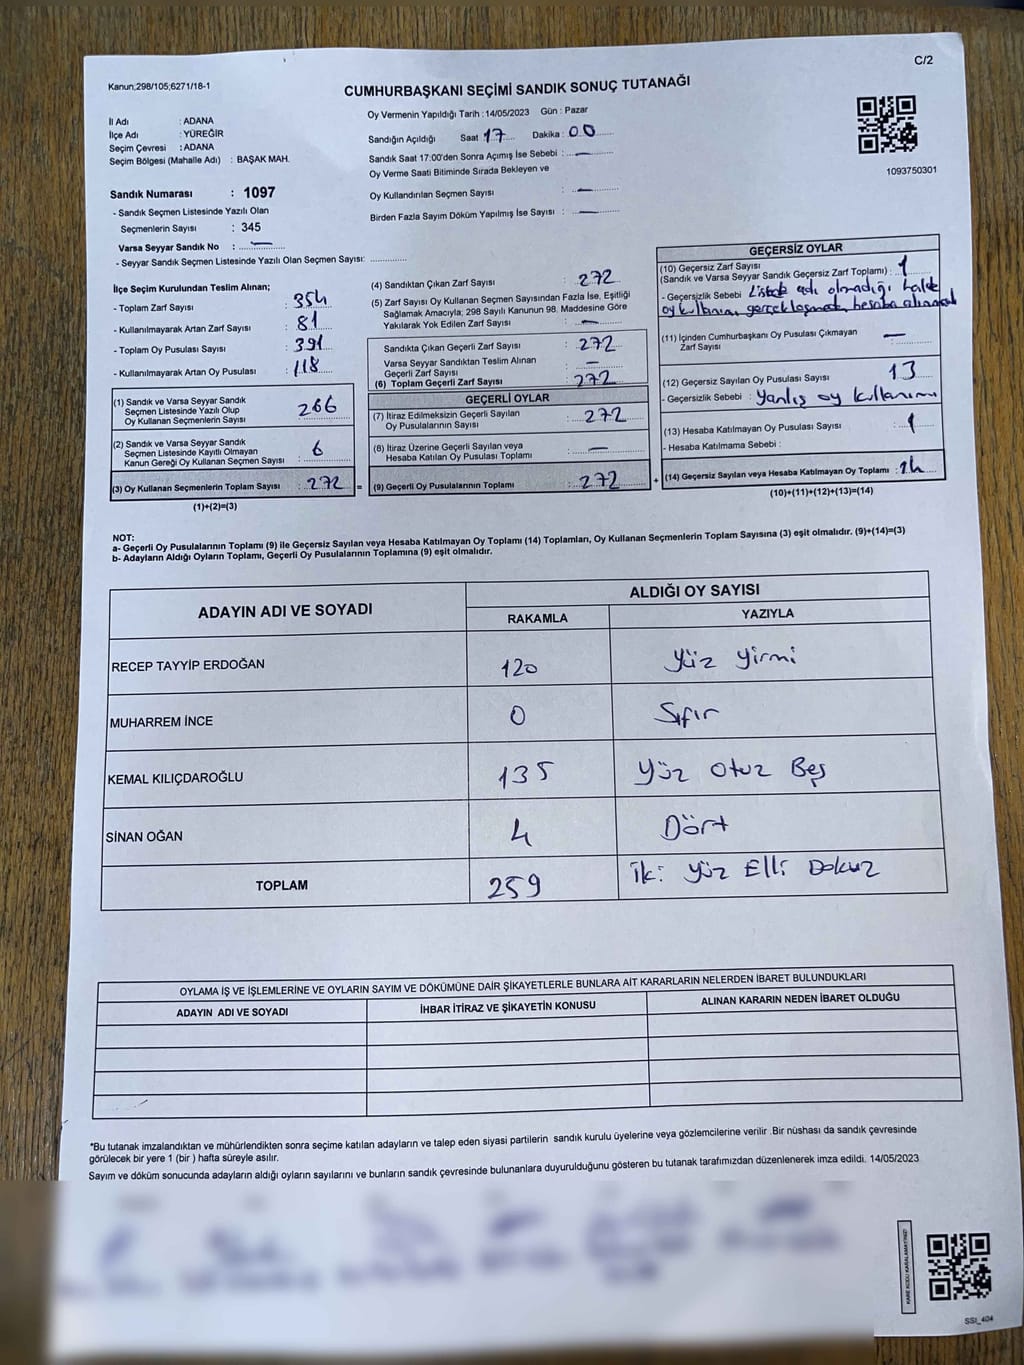 C/2
Kanun;298/105;6271/18-1
CUMHURBAŞKANI SEÇİMİ SANDIK SONUÇ TUTANAĞI
İl Adı : ADANA
İlçe Adı : YÜREĞİR
Seçim Çevresi : ADANA
Seçim Bölgesi (Mahalle Adı) : BAŞAK MAH.
Sandık Numarası : 1097
- Sandık Seçmen Listesinde Yazılı Olan
Seçmenlerin Sayısı : 345
Varsa Seyyar Sandık No : —
- Seyyar Sandık Seçmen Listesinde Yazılı Olan Seçmen Sayısı: ..............
Oy Vermenin Yapıldığı Tarih :14/05/2023 Gün : Pazar
Sandığın Açıldığı Saat 17 Dakika : 00
Sandık Saat 17:00'den Sonra Açımış İse Sebebi : —
Oy Verme Saati Bitiminde Sırada Bekleyen ve
Oy Kullandırılan Seçmen Sayısı : —
Birden Fazla Sayım Döküm Yapılmış İse Sayısı : —
1093750301
İlçe Seçim Kurulundan Teslim Alınan;
- Toplam Zarf Sayısı : 354
- Kullanılmayarak Artan Zarf Sayısı : 81
- Toplam Oy Pusulası Sayısı : 391
- Kullanılmayarak Artan Oy Pusulası : 118
(1) Sandık ve Varsa Seyyar Sandık
Seçmen Listesinde Yazılı Olup
Oy Kullanan Seçmenlerin Sayısı : 266
(2) Sandık ve Varsa Seyyar Sandık
Seçmen Listesinde Kayıtlı Olmayan
Kanun Gereği Oy Kullanan Seçmen Sayısı : 6
(3) Oy Kullanan Seçmenlerin Toplam Sayısı : 272 =
(1)+(2)=(3)
(4) Sandıktan Çıkan Zarf Sayısı : 272
(5) Zarf Sayısı Oy Kullanan Seçmen Sayısından Fazla İse, Eşitliği
Sağlamak Amacıyla; 298 Sayılı Kanunun 98. Maddesine Göre
Yakılarak Yok Edilen Zarf Sayısı : —
Sandıkta Çıkan Geçerli Zarf Sayısı : 272
Varsa Seyyar Sandıktan Teslim Alınan
Geçerli Zarf Sayısı : —
(6) Toplam Geçerli Zarf Sayısı 272
GEÇERLİ OYLAR
(7) İtiraz Edilmeksizin Geçerli Sayılan
Oy Pusulasının Sayısı : 272
(8) İtiraz Üzerine Geçerli Sayılan veya
Hesaba Katılan Oy Pusulası Toplamı : —
(9) Geçerli Oy Pusulalarının Toplamı : 272 +
GEÇERSİZ OYLAR
(10) Geçersiz Zarf Sayısı
(Sandık ve Varsa Seyyar Sandık Geçersiz Zarf Toplamı) : 1
- Geçersizlik Sebebi : Listede adı olmadığı halde
oy kullanımı hesaba
(11) İçinden Cumhurbaşkanı Oy Pusulası Çıkmayan
Zarf Sayısı : —
(12) Geçersiz Sayılan Oy Pusulası Sayısı : 13
- Geçersizlik Sebebi : Yanlış oy kullanımı
(13) Hesaba Katılmayan Oy Pusulası Sayısı : 1
- Hesaba Katılmama Sebebi :
(14) Geçersiz Sayılan veya Hesaba Katılmayan Oy Toplamı : 14
(10)+(11)+(12)+(13)=(14)
NOT:
a- Geçerli Oy Pusulalarının Toplamı (9) ile Geçersiz Sayılan veya Hesaba Katılmayan Oy Toplamı (14) Toplamları, Oy Kullanan Seçmenlerin Toplam Sayısına (3) eşit olmalıdır. (9)+(14)=(3)
b- Adayların Aldığı Oyların Toplamı, Geçerli Oy Pusulalarının Toplamına (9) eşit olmalıdır.
ADAYIN ADI VE SOYADI ALDIĞI OY SAYISI
RAKAMLA YAZIYLA
RECEP TAYYİP ERDOĞAN 120 Yüz Yirmi
MUHARREM İNCE 0 Sıfır
KEMAL KILIÇDAROĞLU 135 Yüz Otuz Beş
SİNAN OĞAN 4 Dört
TOPLAM 259 İki Yüz Elli Dokuz
OYLAMA İŞ VE İŞLEMLERİNE VE OYLARIN SAYIM VE DÖKÜMÜNE DAİR ŞİKAYETLERLE BUNLARA AİT KARARLARIN NELERDEN İBARET BULUNDUKLARI
ADAYIN ADI VE SOYADI İHBAR İTİRAZ VE ŞİKAYETİN KONUSU ALINAN KARARIN NEDEN İBARET OLDUĞU
*Bu tutanak imzalandıktan ve mühürlendikten sonra seçime katılan adayların ve talep eden siyasi partilerin sandık kurulu üyelerine veya gözlemcilerine verilir .Bir nüshası da sandık çevresinde
görülecek bir yere 1 (bir ) hafta süreyle asılır.
Sayım ve döküm sonucunda adayların aldığı oyların sayılarını ve bunların sandık çevresinde bulunanlara duyurulduğunu gösteren bu tutanak tarafımızdan düzenlenerek imza edildi. 14/05/2023
KARE KODU KARALAMAYINIZ!
SSI_404